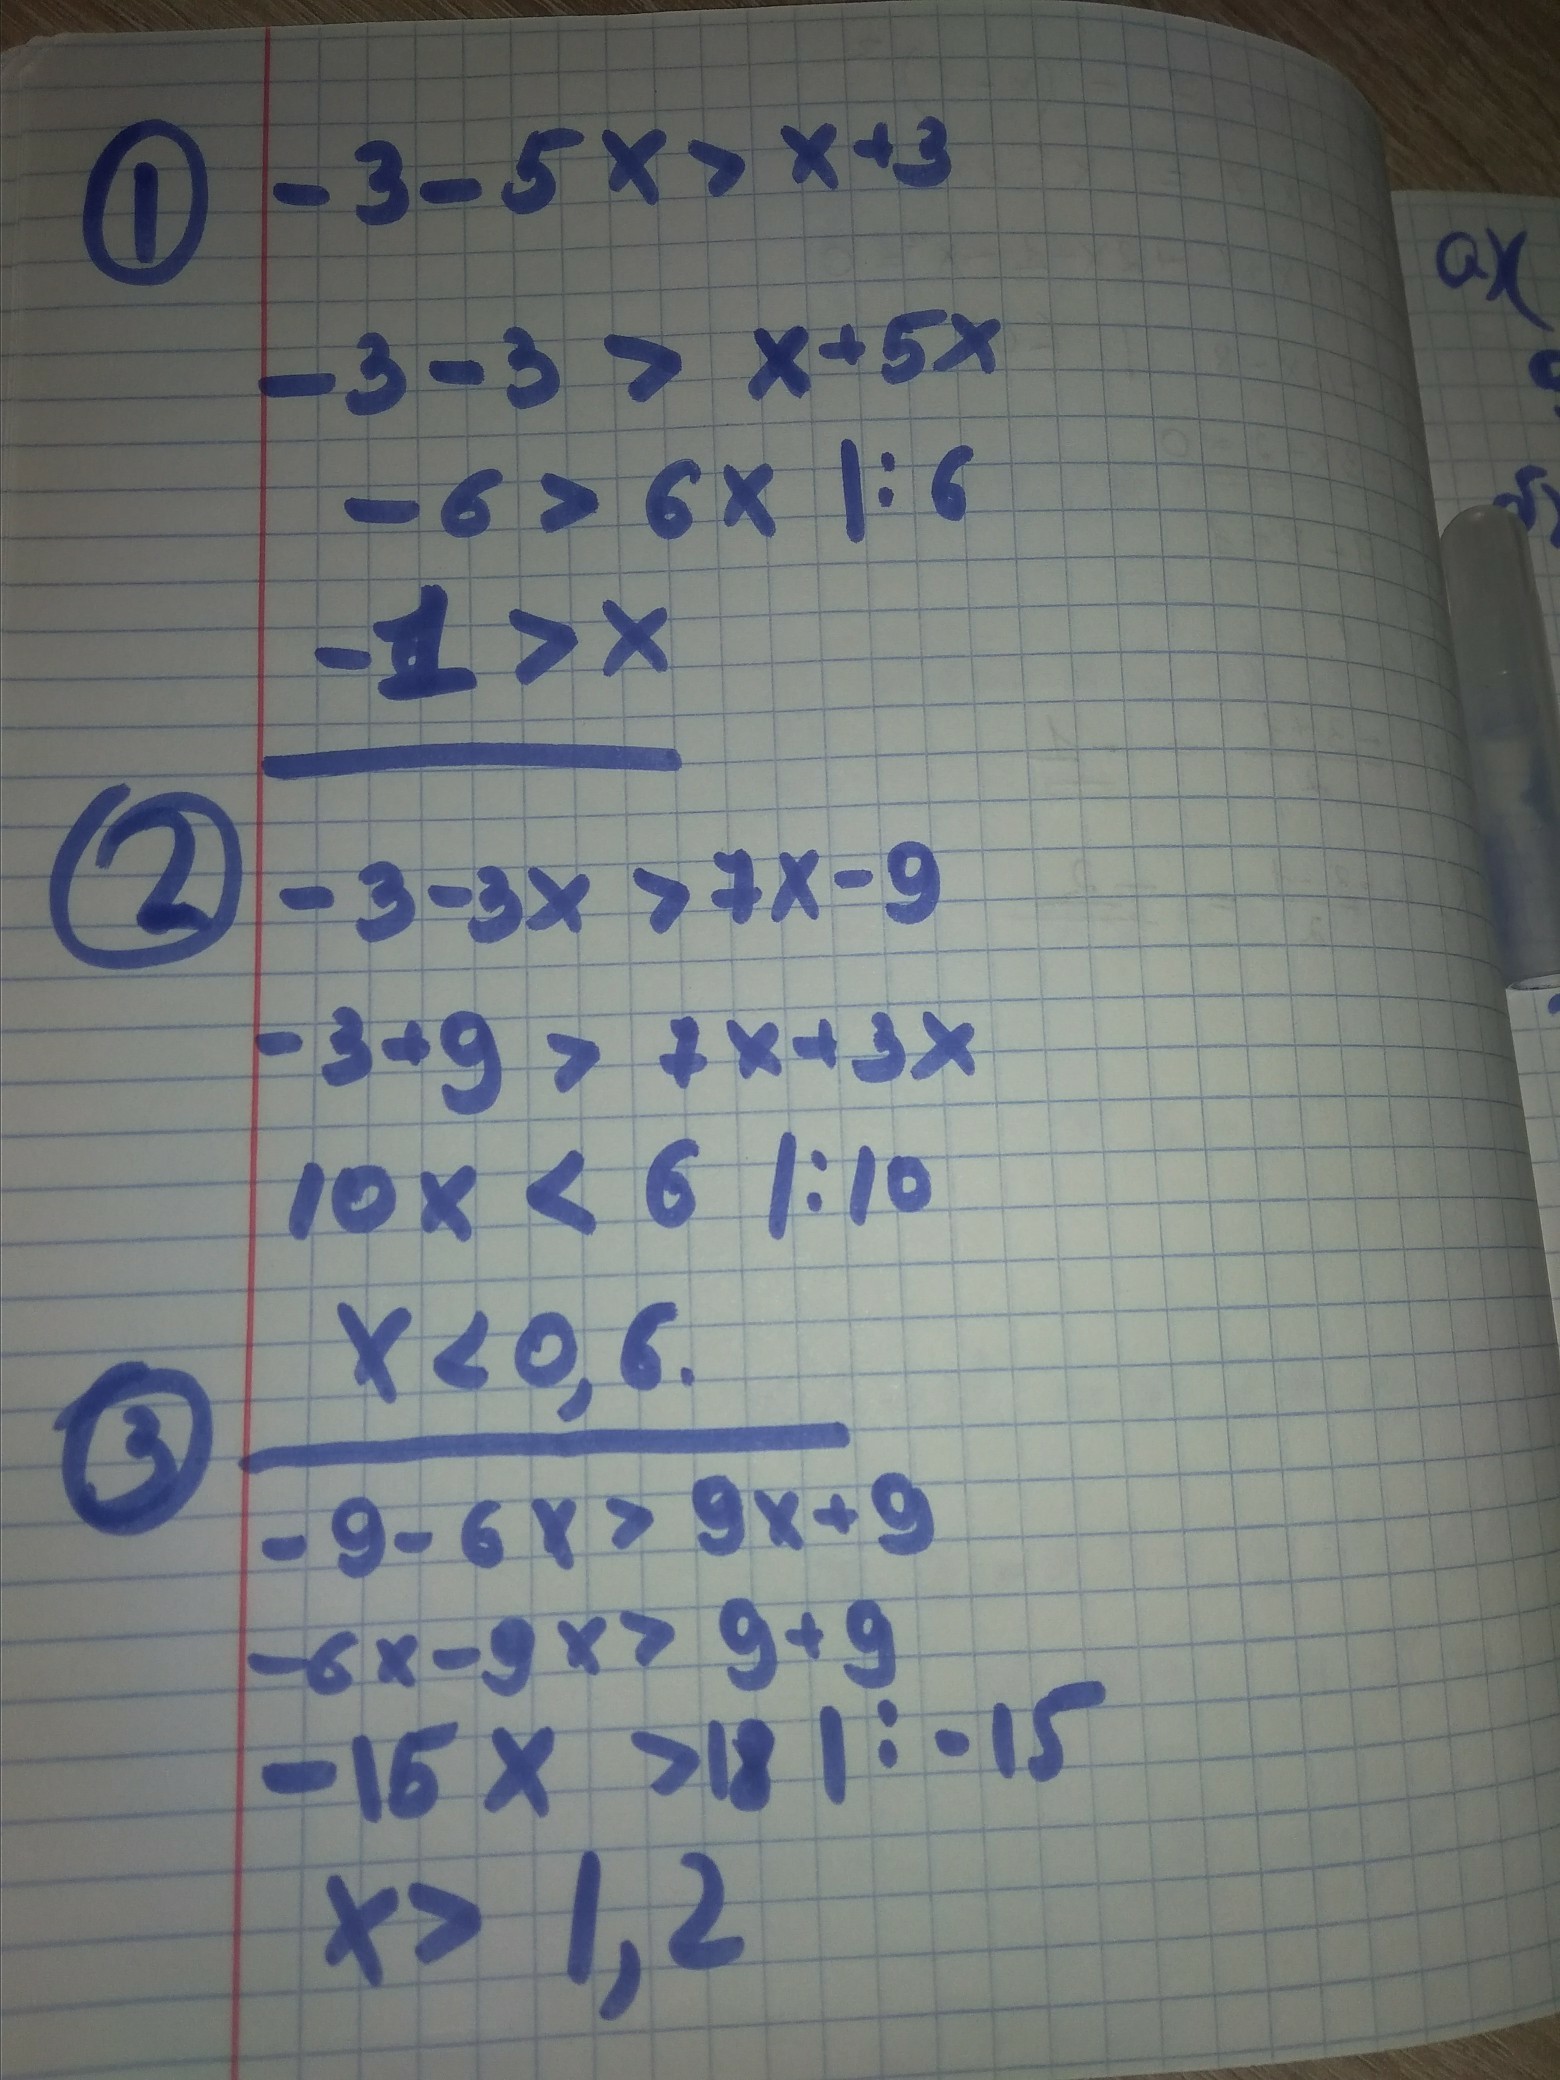 ① -3-5x>x+3
-3-3 > x+5x
-6 > 6x |:6
-1 > x
② -3-3x >7x-9
-3+9 > 7x+3x
10x < 6 |:10
x<0,6.
③
-9-6x> 9x+9
-6x-9x> 9+9
-15x >18 |:-15
x> 1,2
a)